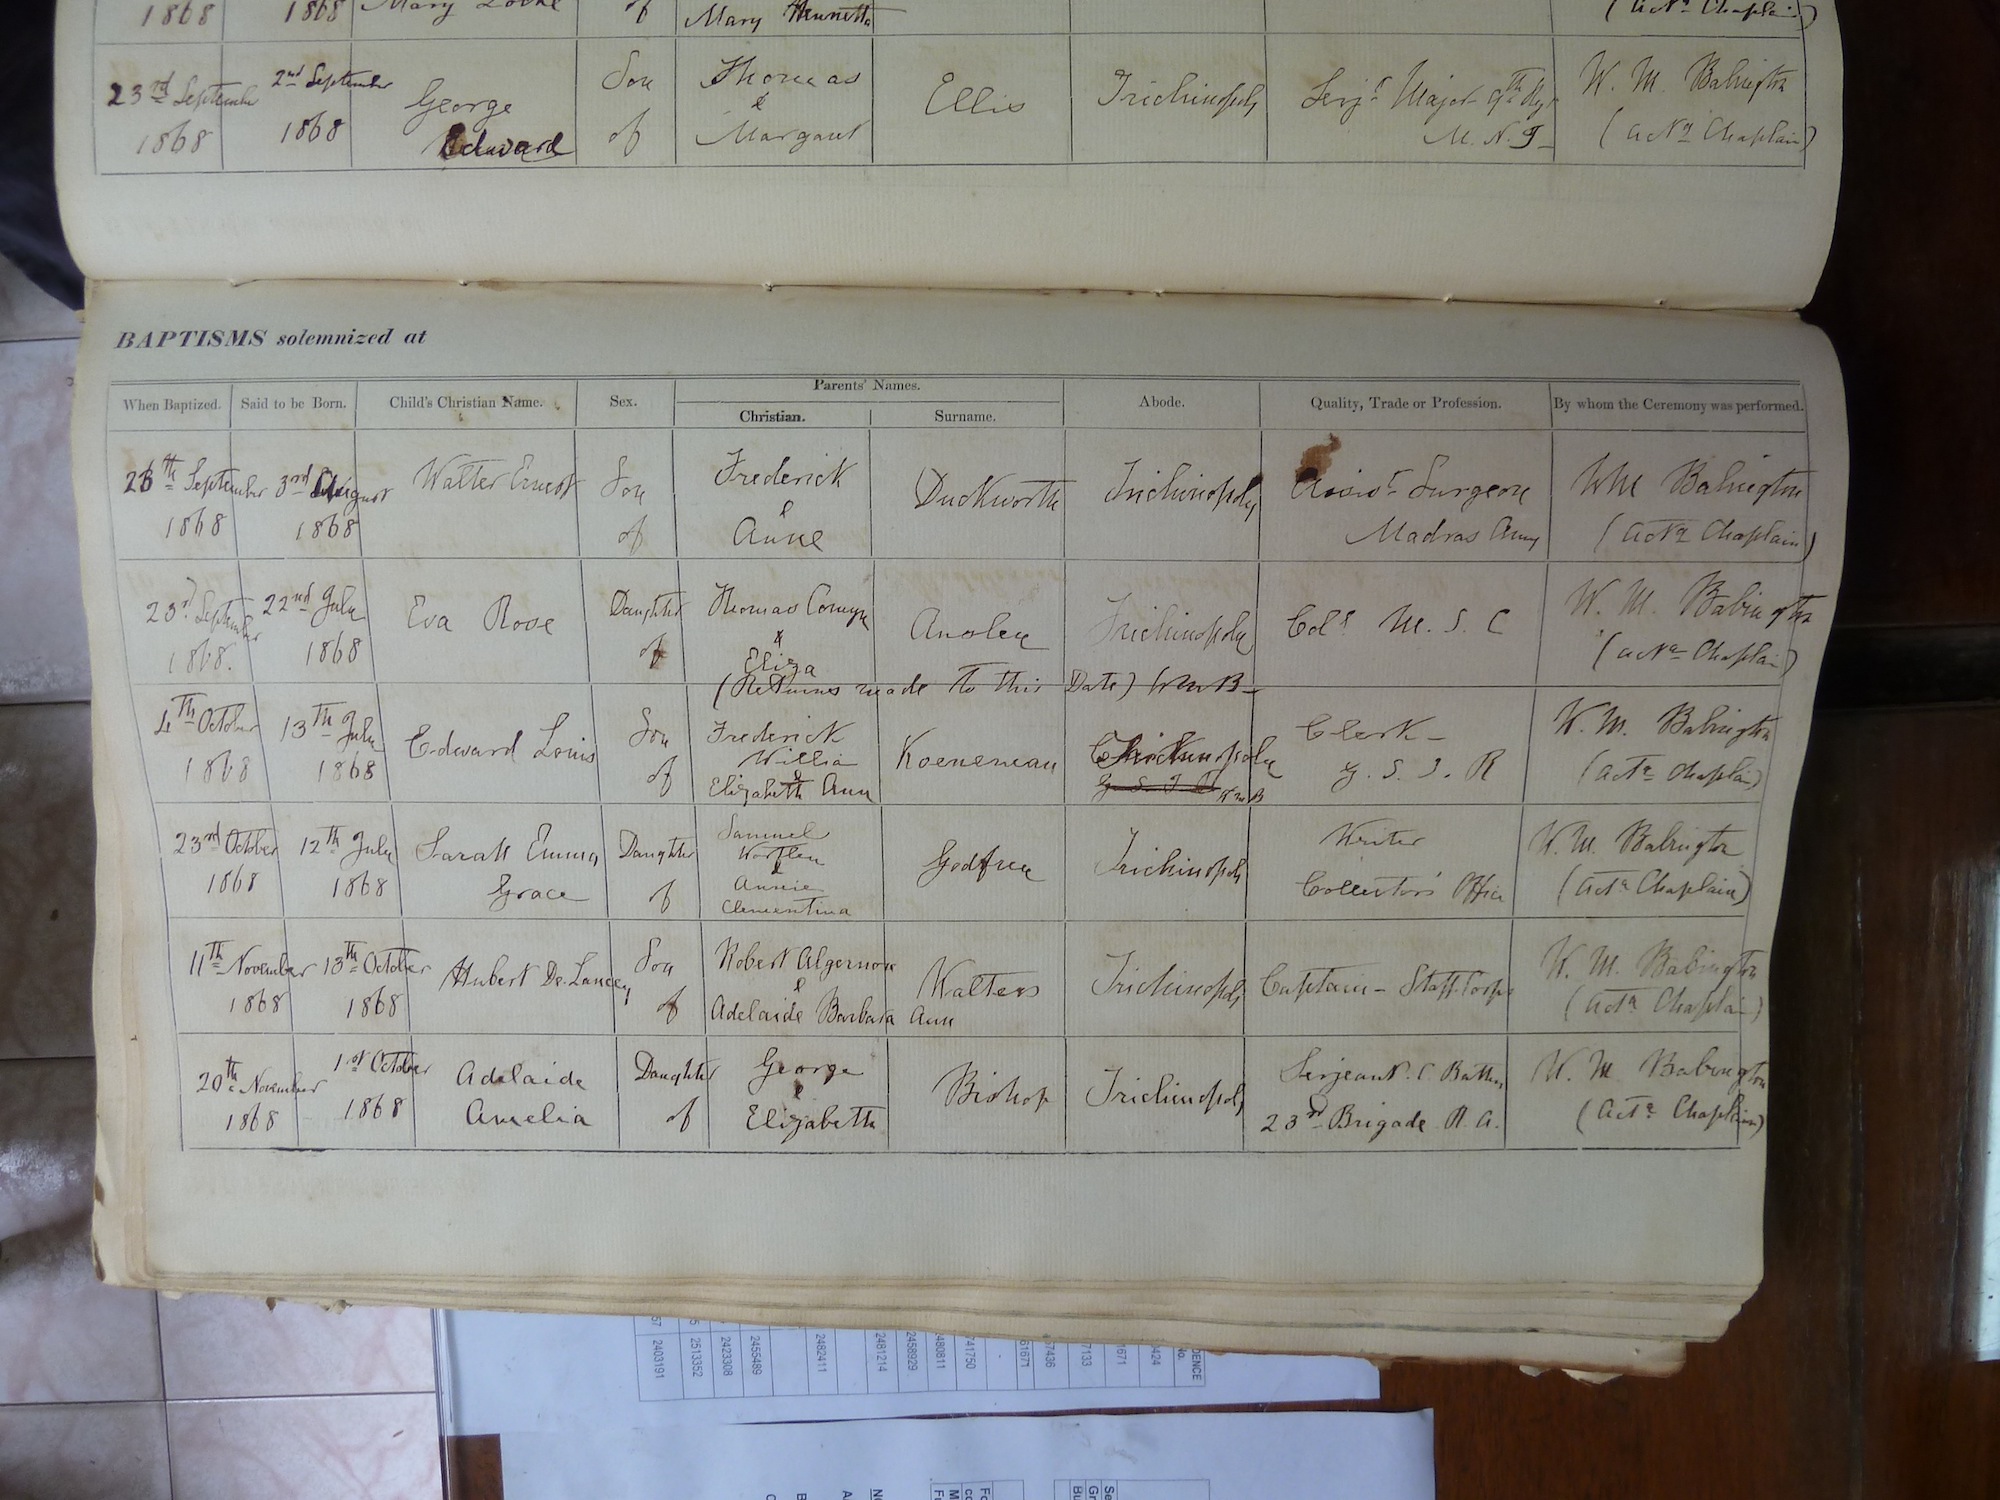 1868 1868 Mary of Mary Henrietta (Actg Chaplain)
23rd September 1868
2nd September 1868
George Edward
Son of
Thomas & Margaret
Ellis
Trichinopoly
Serjt Major 9th Regt
M. N. I
W. M. Babington
(Actg Chaplain)
BAPTISMS solemnized at
When Baptized. Said to be Born. Child's Christian Name. Sex. Parents' Names. Abode. Quality, Trade or Profession. By whom the Ceremony was performed.
Christian. Surname.
26th September 1868
3rd August 1868
Walter Ernest
Son of
Frederick & Anne
Duckworth
Trichinopoly
Assist Surgeon
Madras Army
WM Babington
(Actg Chaplain)
September 1868.
22nd July 1868
Eva Rose
Daughter of
Thomas Comyn & Eliza
Ansley
Trichinopoly
Col. M. S. C
W. M. Babington
(Actg Chaplain)
(Returns made to this Date) WMB
4th October 1868
13th July 1868
Edward Louis
Son of
Frederick
Willia
&
Elizabeth Ann
Koeneman
Trichinopoly
WMB
Clerk
G. S. I. R
W. M. Babington
(Actg Chaplain)
23rd October 1868
12th July 1868
Sarah Emma
Grace
Daughter of
Samuel
&
Annie
Clementina
Godfrey
Trichinopoly
Writer
Collectors Office
W. M. Babington
(Actg Chaplain)
11th November 1868
13th October 1868
Hubert De Lancey
Son of
Robert Algernon
&
Adelaide Barbara Ann
Walters
Trichinopoly
Captain - Staff Corps
W. M. Babington
(Actg Chaplain)
20th November 1868
1st October 1868
Adelaide
Amelia
Daughter of
George
&
Elizabeth
Bishop
Trichinopoly
Serjeant. C Battery
23rd Brigade R. A.
W. M. Babington
(Actg Chaplain)
2403191
2513352
2423308
2455489
2482411
2481214
2458929